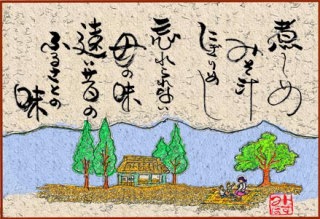 煮しめ
みそ汁
にぎりめし
忘れられない
母の味
遠い昔の
ふるさとの
味